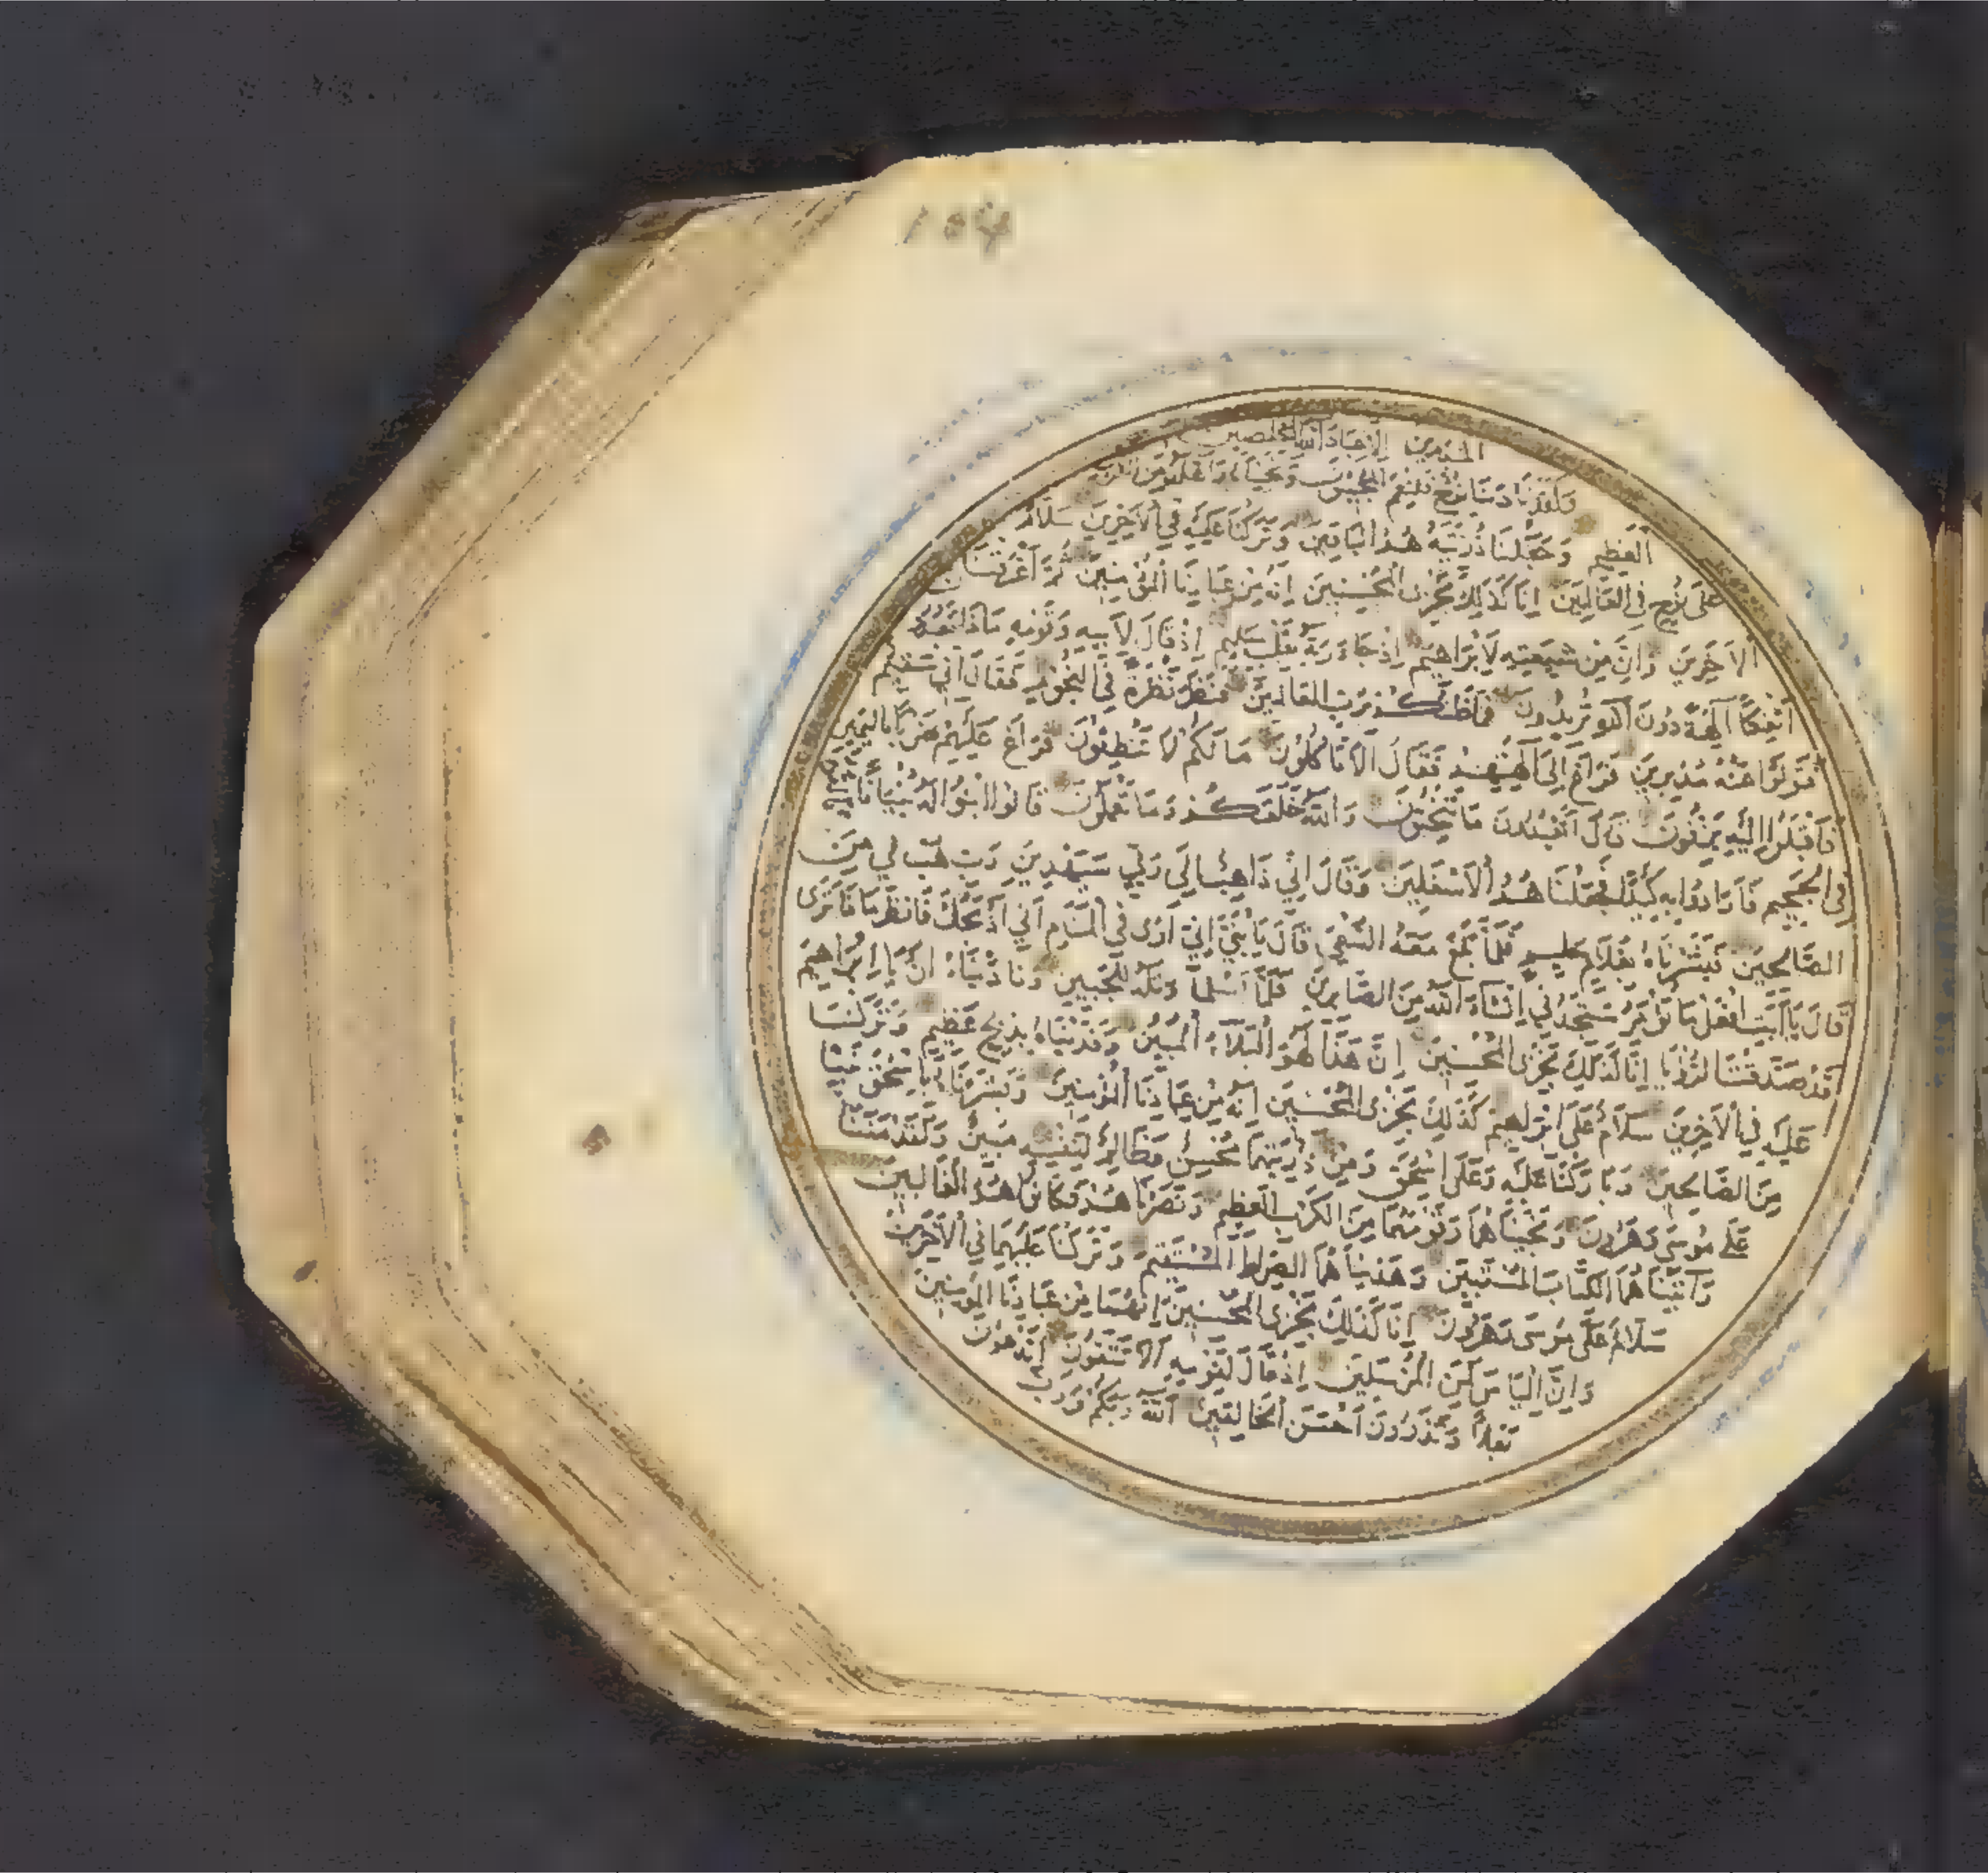 المنذرين الا عباد الله المخلصين
ولقد نادينا نوح فلنعم المجيبون ونجيناه واهله من الكرب
العظيم وجعلنا ذريته هم الباقين وتركنا عليه في الآخرين سلام
على نوح في العالمين انا كذلك نجزى المحسنين انه من عبادنا المؤمنين ثم اغرقنا
الآخرين وان من شيعته لابراهيم اذ جاء ربه بقلب سليم اذ قال لابيه وقومه ماذا تعبدون
ائفكا آلهة دون الله تريدون فما ظنكم برب العالمين فنظر نظرة في النجوم فقال اني سقيم
فتولوا عنه مدبرين فراغ الى آلهتهم فقال الا تاكلون ما لكم لا تنطقون فراغ عليهم ضربا باليمين
فاقبلوا اليه يزفون قال اتعبدون ما تنحتون والله خلقكم وما تعملون قالوا ابنوا له بنيانا فالقوه
في الجحيم فارادوا به كيدا فجعلناهم الاسفلين وقال اني ذاهب الى ربي سيهدين رب هب لي من
الصالحين فبشرناه بغلام حليم فلما بلغ معه السعي قال يا بني اني ارى في المنام اني اذبحك فانظر ماذا ترى
قال يا ابت افعل ما تؤمر ستجدني ان شاء الله من الصابرين فلما اسلما وتله للجبين وناديناه ان يا ابراهيم
قد صدقت الرؤيا انا كذلك نجزى المحسنين ان هذا لهو البلاء المبين وفديناه بذبح عظيم وتركنا
عليه في الآخرين سلام على ابرهيم كذلك نجزى المحسنين انه من عبادنا المؤمنين وبشرناه باسحق نبيا
من الصالحين وباركنا عليه وعلى اسحق ومن ذريتهما محسن وظالم لنفسه مبين ولقد مننا
على موسى وهرون ونجيناهما وقومهما من الكرب العظيم ونصرناهم فكانوا هم الغالبين
وآتيناهما الكتاب المستبين وهديناهما الصراط المستقيم وتركنا عليهما في الآخرين
سلام على موسى وهرون انا كذلك نجزى المحسنين انهما من عبادنا المؤمنين
وان الياس لمن المرسلين اذ قال لقومه الا تتقون اتدعون
بعلا وتذرون احسن الخالقين الله ربكم ورب